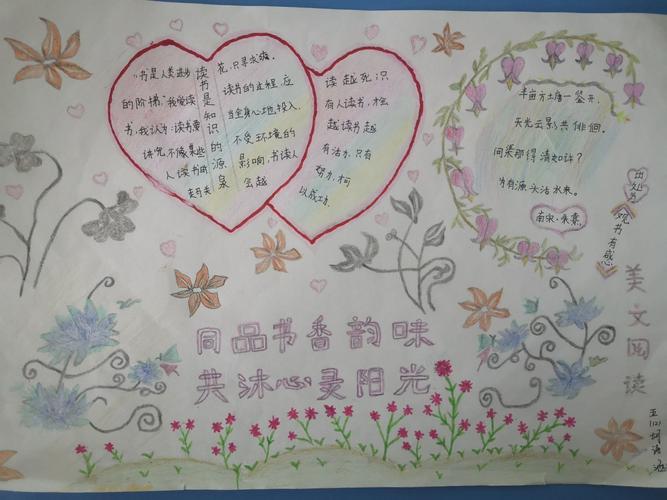 "书是人类进步
的阶梯."我爱读
书.我认为:读书要
讲究.不像某些
人读书时
走马关
读书是知识的源泉
花.只寻求表
读书的过程.应
当全身心地投入.
不受环境的
影响.书读人
会越
读越死;只
有人读书,
越读书越
有活力.只有
努力.
以成功.
半亩方塘一鉴开,
天光云影共徘徊.
问渠那得清如许?
为有源头活水来.
南宋·朱熹
出处为
《观书有感》
美文阅读
同品书香韵味
共沐心灵阳光
五(2)